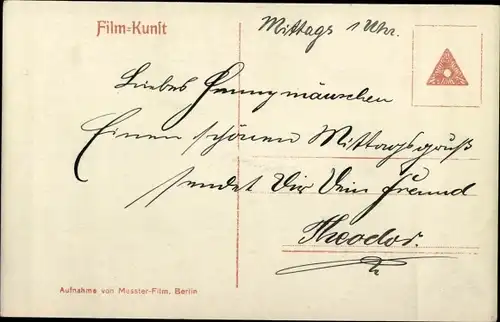 Film=Kunst
Mittags 1 Uhr.
Liebes Hennymäuschen
Einen schönen Mittagsgruß
sendet Dir Dein Freund
Theodor.
Aufnahme von Messter-Film, Berlin